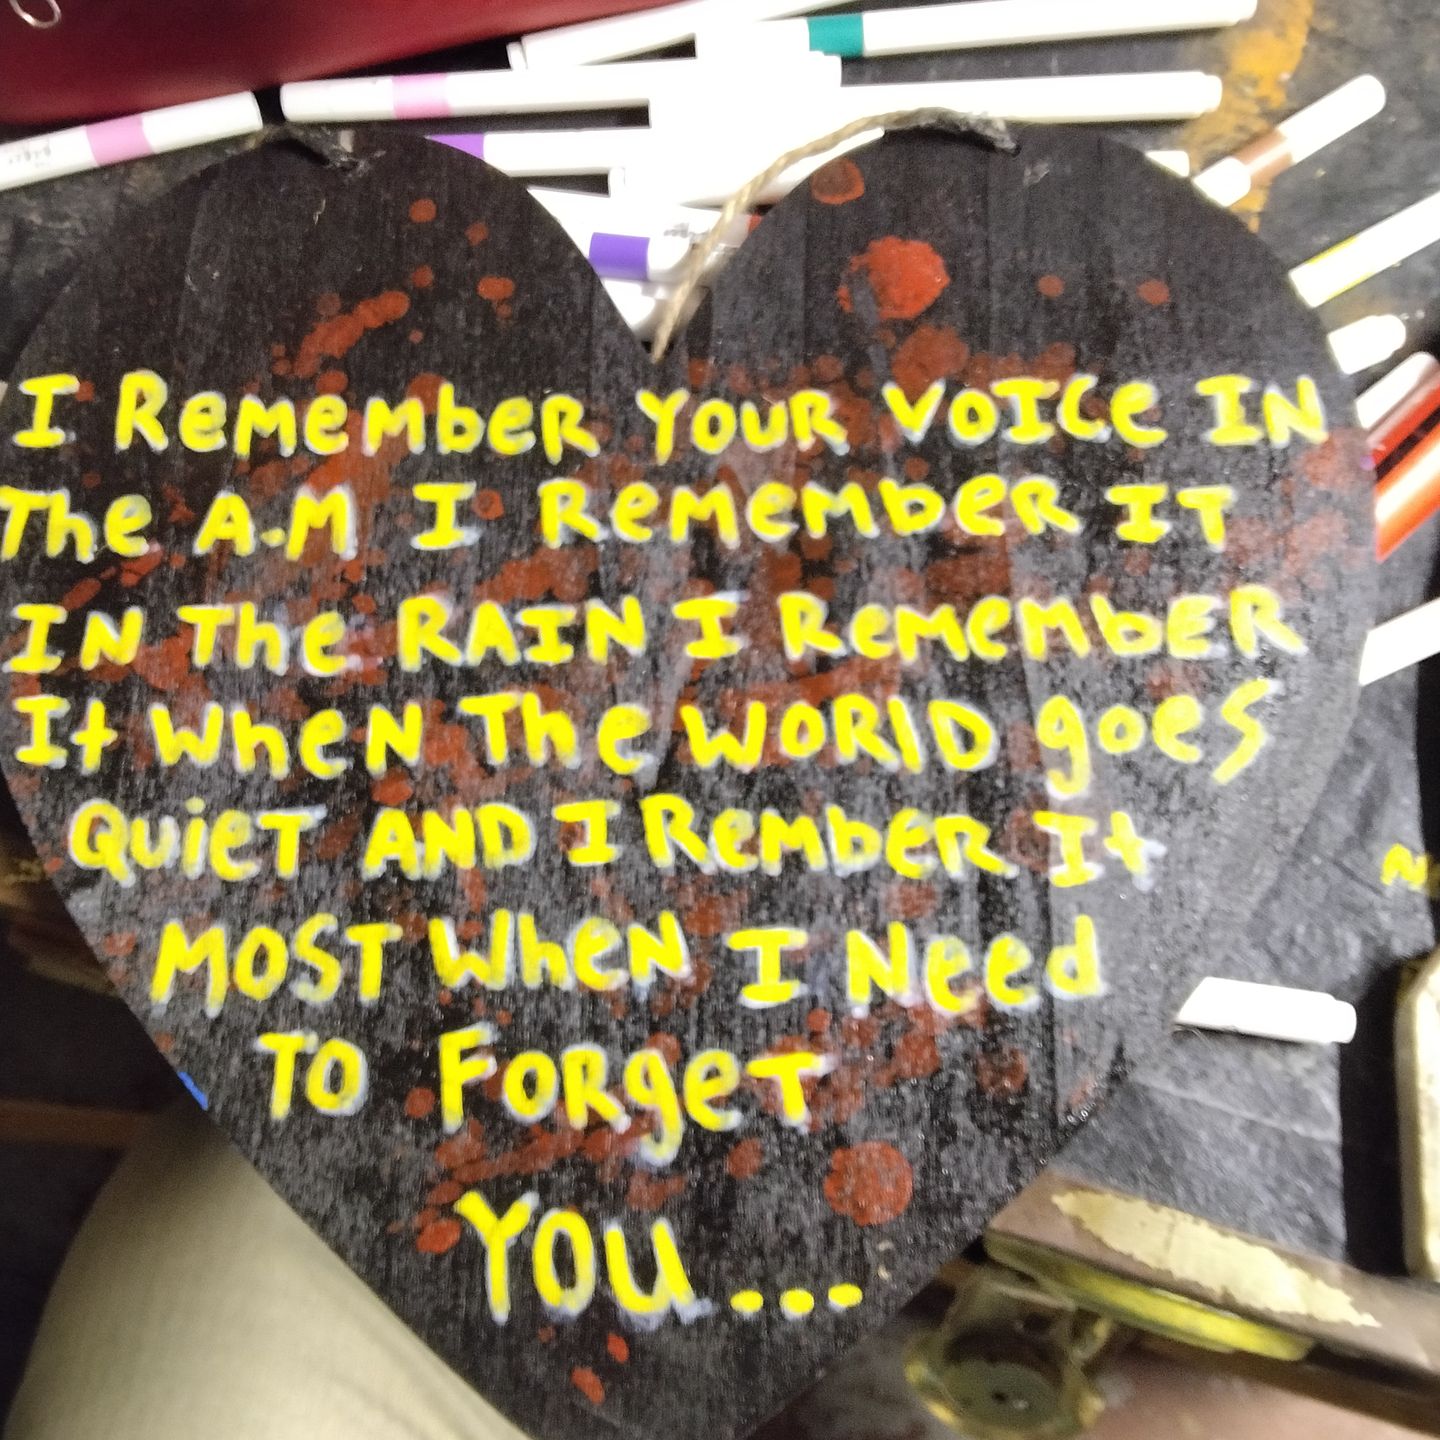 I RemembeR YOUR VOICe IN
The A.M I RemembeR IT
IN The RAIN I RemembER
It WheN The WORlD goes
QuieT AND I RembeR It
MOST WheN I Need
TO FORgeT
YOu...
N